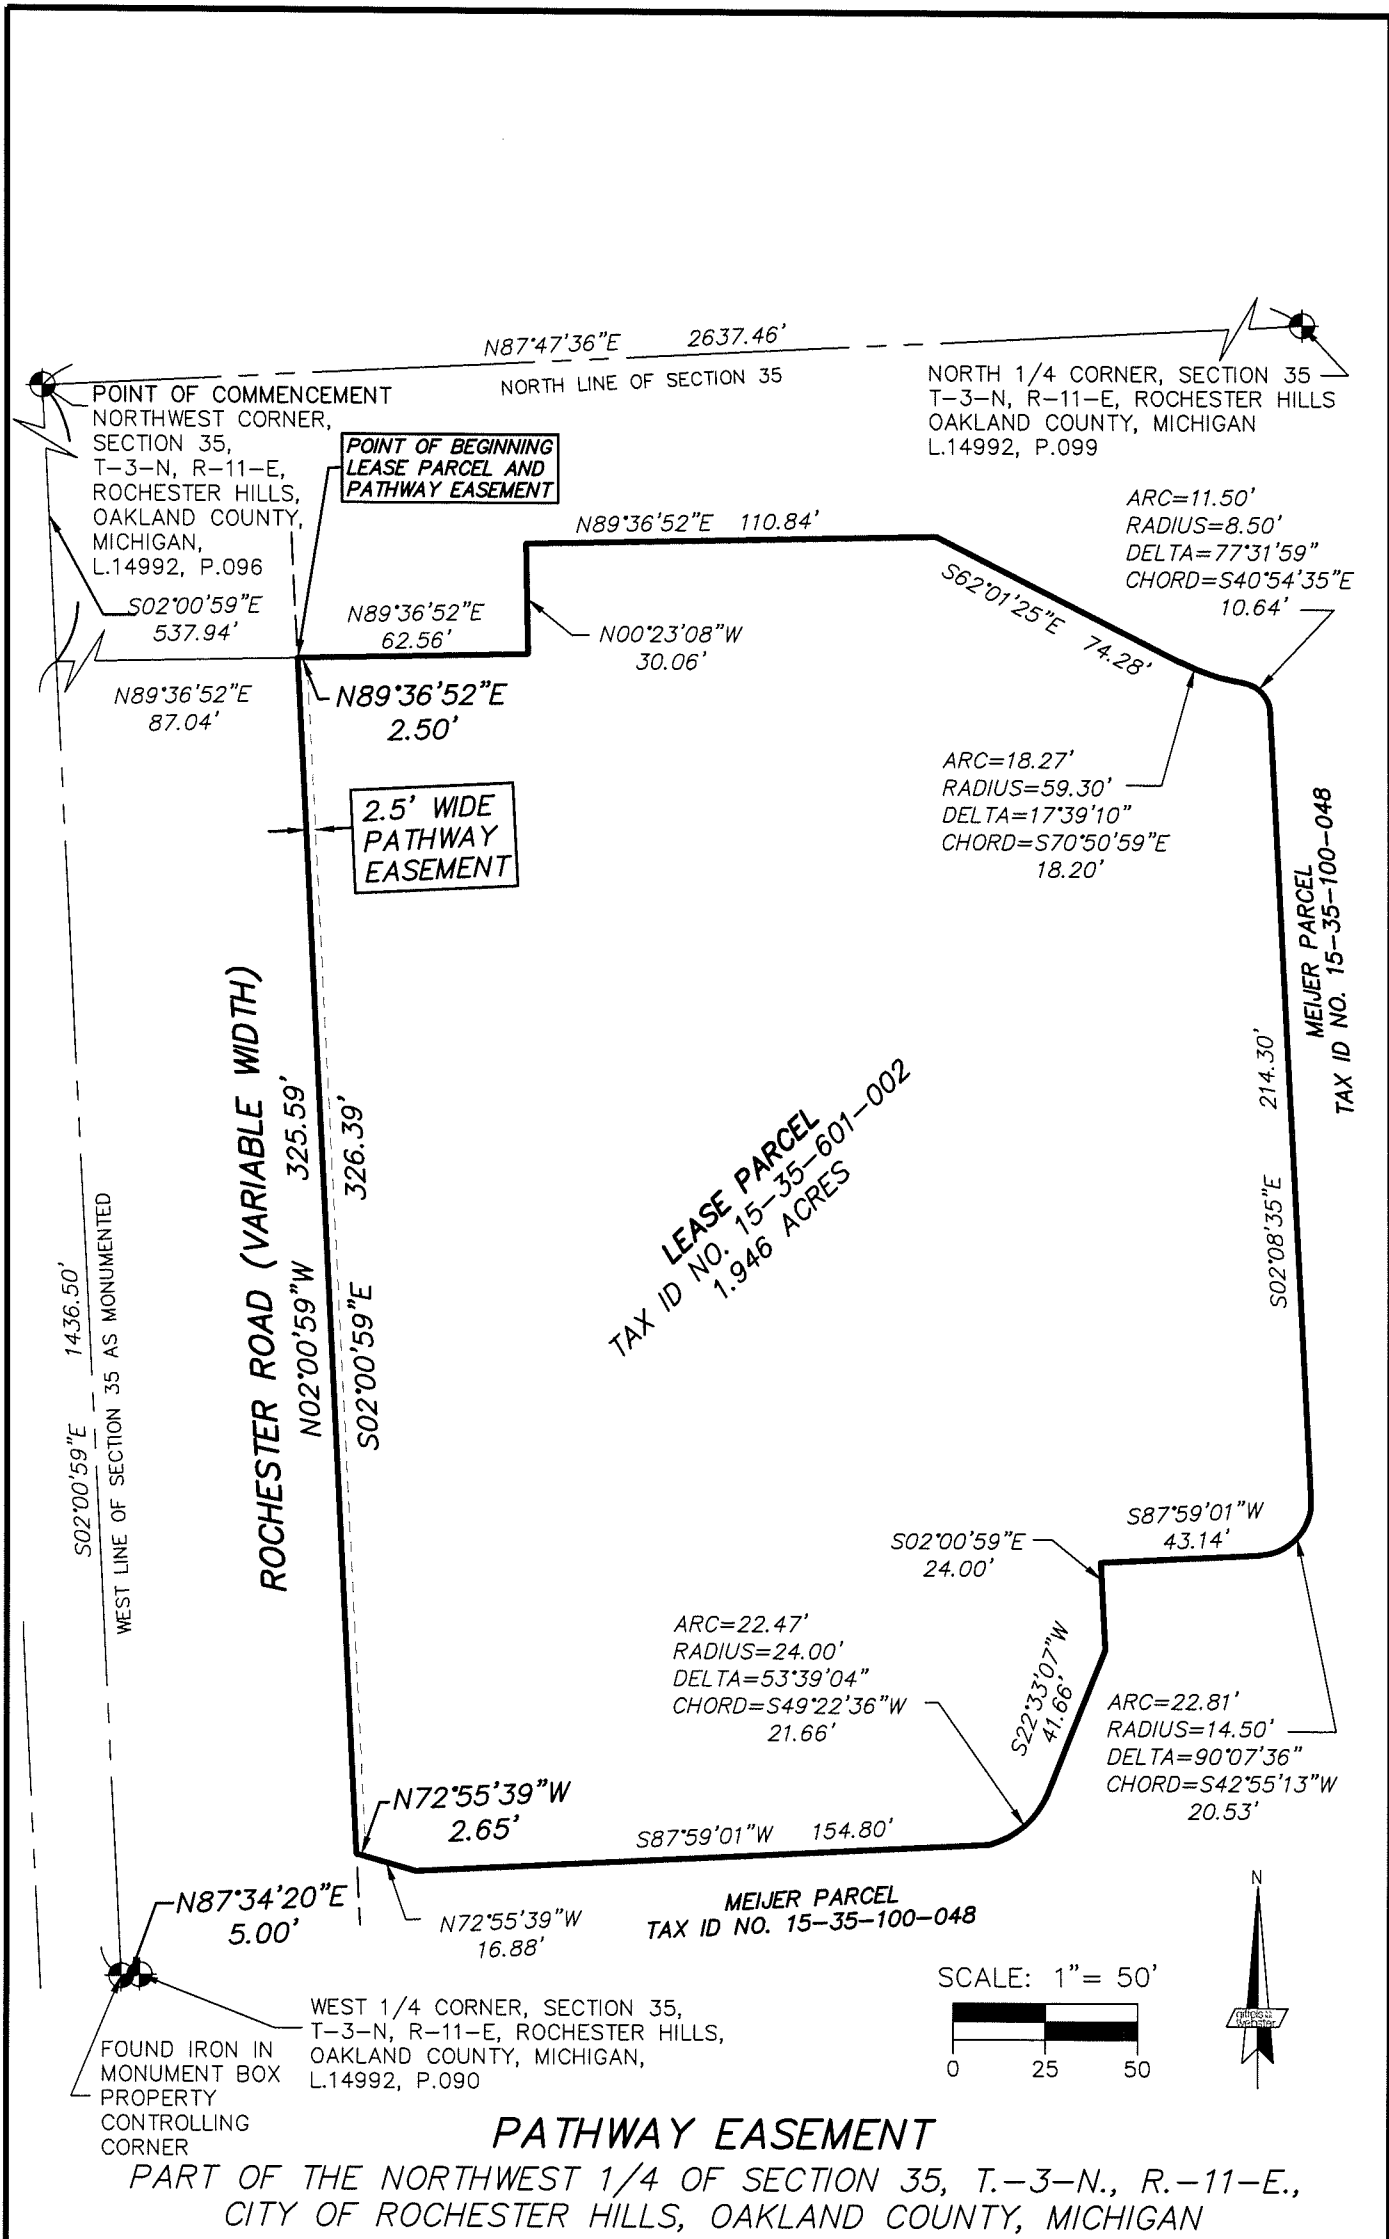 N87°47'36"E 2637.46'
NORTH LINE OF SECTION 35
POINT OF COMMENCEMENT
NORTHWEST CORNER,
SECTION 35,
T-3-N, R-11-E,
ROCHESTER HILLS,
OAKLAND COUNTY,
MICHIGAN,
L.14992, P.096
NORTH 1/4 CORNER, SECTION 35
T-3-N, R-11-E, ROCHESTER HILLS
OAKLAND COUNTY, MICHIGAN
L.14992, P.099
POINT OF BEGINNING
LEASE PARCEL AND
PATHWAY EASEMENT
S02°00'59"E
537.94'
N89°36'52"E
87.04'
N89°36'52"E
62.56'
N89°36'52"E 110.84'
N00°23'08"W
30.06'
S62°01'25"E 74.28'
ARC=11.50'
RADIUS=8.50'
DELTA=77°31'59"
CHORD=S40°54'35"E
10.64'
N89°36'52"E
2.50'
ARC=18.27'
RADIUS=59.30'
DELTA=17°39'10"
CHORD=S70°50'59"E
18.20'
2.5' WIDE
PATHWAY
EASEMENT
MEIJER PARCEL
TAX ID NO. 15-35-100-048
ROCHESTER ROAD (VARIABLE WIDTH)
N02°00'59"W 325.59'
S02°00'59"E 326.39'
LEASE PARCEL
TAX ID NO. 15-35-601-002
1.946 ACRES
S02°08'35"E 214.30'
S02°00'59"E 1436.50'
WEST LINE OF SECTION 35 AS MONUMENTED
S87°59'01"W
43.14'
S02°00'59"E
24.00'
ARC=22.47'
RADIUS=24.00'
DELTA=53°39'04"
CHORD=S49°22'36"W
21.66'
S22°33'07"W
41.66'
ARC=22.81'
RADIUS=14.50'
DELTA=90°07'36"
CHORD=S42°55'13"W
20.53'
N72°55'39"W
2.65'
S87°59'01"W 154.80'
N87°34'20"E
5.00'
N72°55'39"W
16.88'
MEIJER PARCEL
TAX ID NO. 15-35-100-048
N
SCALE: 1"= 50'
0 25 50
WEST 1/4 CORNER, SECTION 35,
T-3-N, R-11-E, ROCHESTER HILLS,
OAKLAND COUNTY, MICHIGAN,
L.14992, P.090
FOUND IRON IN
MONUMENT BOX
PROPERTY
CONTROLLING
CORNER
PATHWAY EASEMENT
PART OF THE NORTHWEST 1/4 OF SECTION 35, T.-3-N., R.-11-E.,
CITY OF ROCHESTER HILLS, OAKLAND COUNTY, MICHIGAN